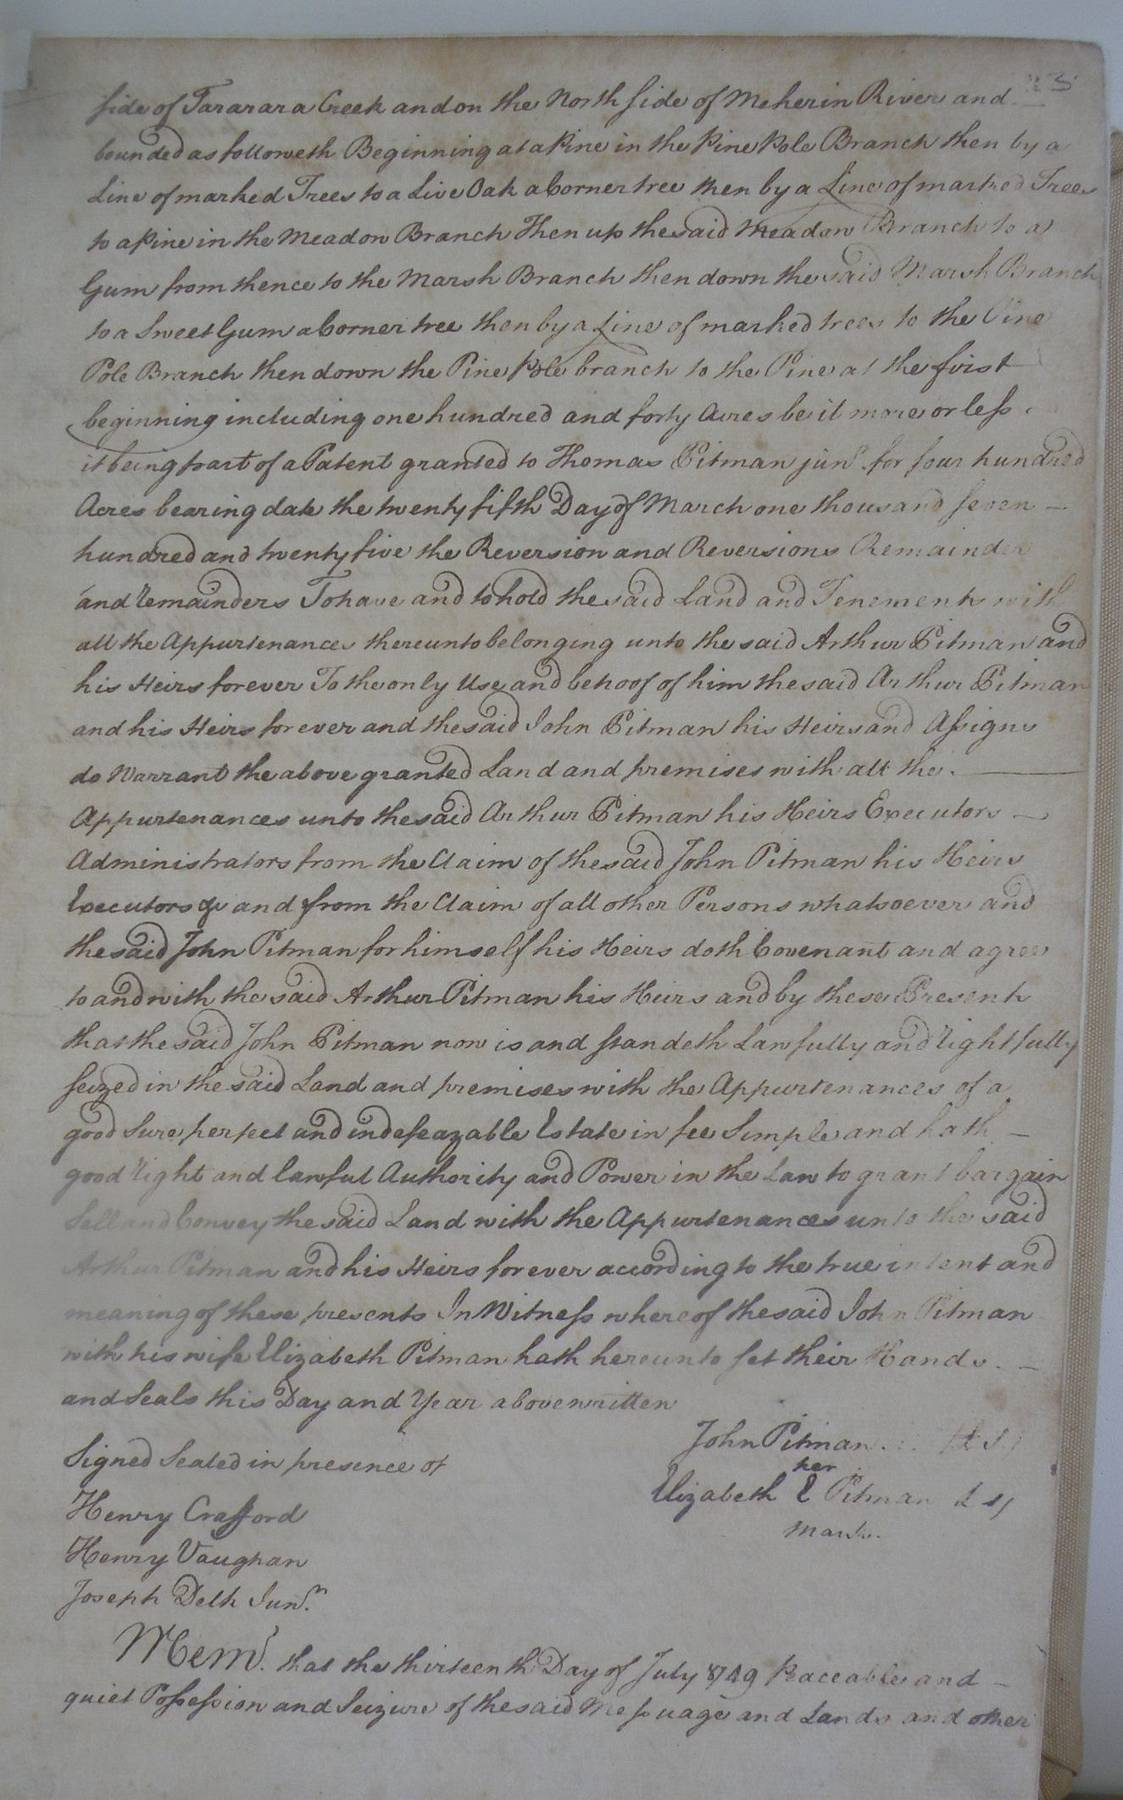 side of Tararara Creek and on the North side of Meherin River and
bounded as followeth Beginning at a Pine in the Pine Pole Branch then by a
Line of marked Trees to a Live Oak a Corner tree then by a Line of marked Trees
to a Pine in the Meadow Branch Then up the said Meadow Branch to a
Gum from thence to the Marsh Branch then down the said Marsh Branch
to a Sweet Gum a Corner tree then by a Line of marked trees to the Pine
Pole Branch then down the Pine Pole branch to the Pine at the first
beginning including one hundred and forty Acres be it more or less
it being part of a Patent granted to Thomas Pitman junr. for four hundred
Acres bearing date the twenty fifth Day of March one thousand seven
hundred and twenty five the Reversion and Reversions Remainder
and remainders To have and to hold the said Land and Tenements with
all the Appurtenances thereunto belonging unto the said Arthur Pitman and
his Heirs forever To the only Use and behoof of him the said Arthur Pitman
and his Heirs forever and the said John Pitman his Heirs and Assigns
do Warrant the above granted Land and premises with all the
Appurtenances unto the said Arthur Pitman his Heirs Executors
Administrators from the Claim of the said John Pitman his Heirs
Executors &c and from the Claim of all other Persons whatsoever and
the said John Pitman for himself his Heirs doth Covenant and agree
to and with the said Arthur Pitman his Heirs and by these Presents
that the said John Pitman now is and standeth Lawfully and rightfully
seized in the said Land and premises with the Appurtenances of a
good Sure perfect and indefeazable Estate in fee Simple and hath
good right and lawful Authority and Power in the Law to grant bargain
Sell and Convey the said Land with the Appurtenances unto the said
Arthur Pitman and his Heirs forever according to the true intent and
meaning of these presents In Witness whereof the said John Pitman
with his wife Elizabeth Pitman hath hereunto set their Hands
and Seals this Day and Year above written
John Pitman L S
Signed Sealed in presence of
her
Elizabeth E Pitman L S
mark
Henry Crafford
Henry Vaughan
Joseph Delk Junr.
Memd. that the thirteenth Day of July 1749 Peaceable and
quiet Possession and Seizure of the said Messuage and Lands and other